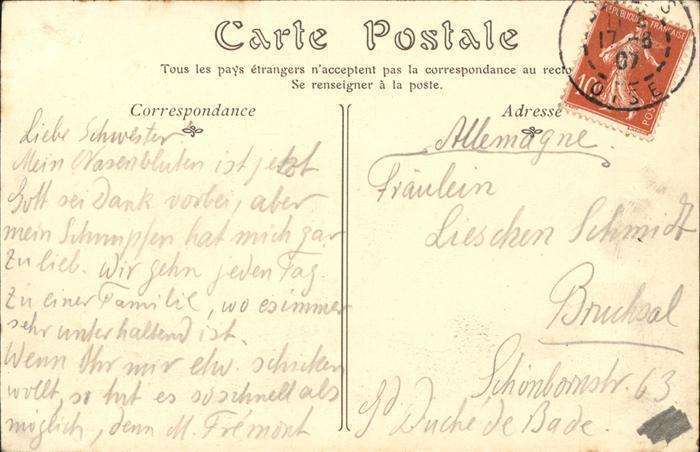 Carte Postale
Tous les pays étrangers n'acceptent pas la correspondance au recto
Se renseigner à la poste.
Correspondance
Liebe Schwester!
Mein Nasenbluten ist jetzt
Gott sei Dank vorbei, aber
mein Schnupfen hat mich gar
zu lieb. Wir gehn jeden Tag
zu einer Familie, wo es immer
sehr unterhaltend ist.
Wenn Ihr mir etw. schicken
wollt, so tut es so schnell als
möglich, denn M. Frémont
Adresse
Allemagne.
Fräulein
Lieschen Schmidt
Bruchsal
Schönbornstr. 63
Gd Duché de Bade.
REPUBLIQUE FRANÇAISE
10
POSTES
17-8
07
OISE